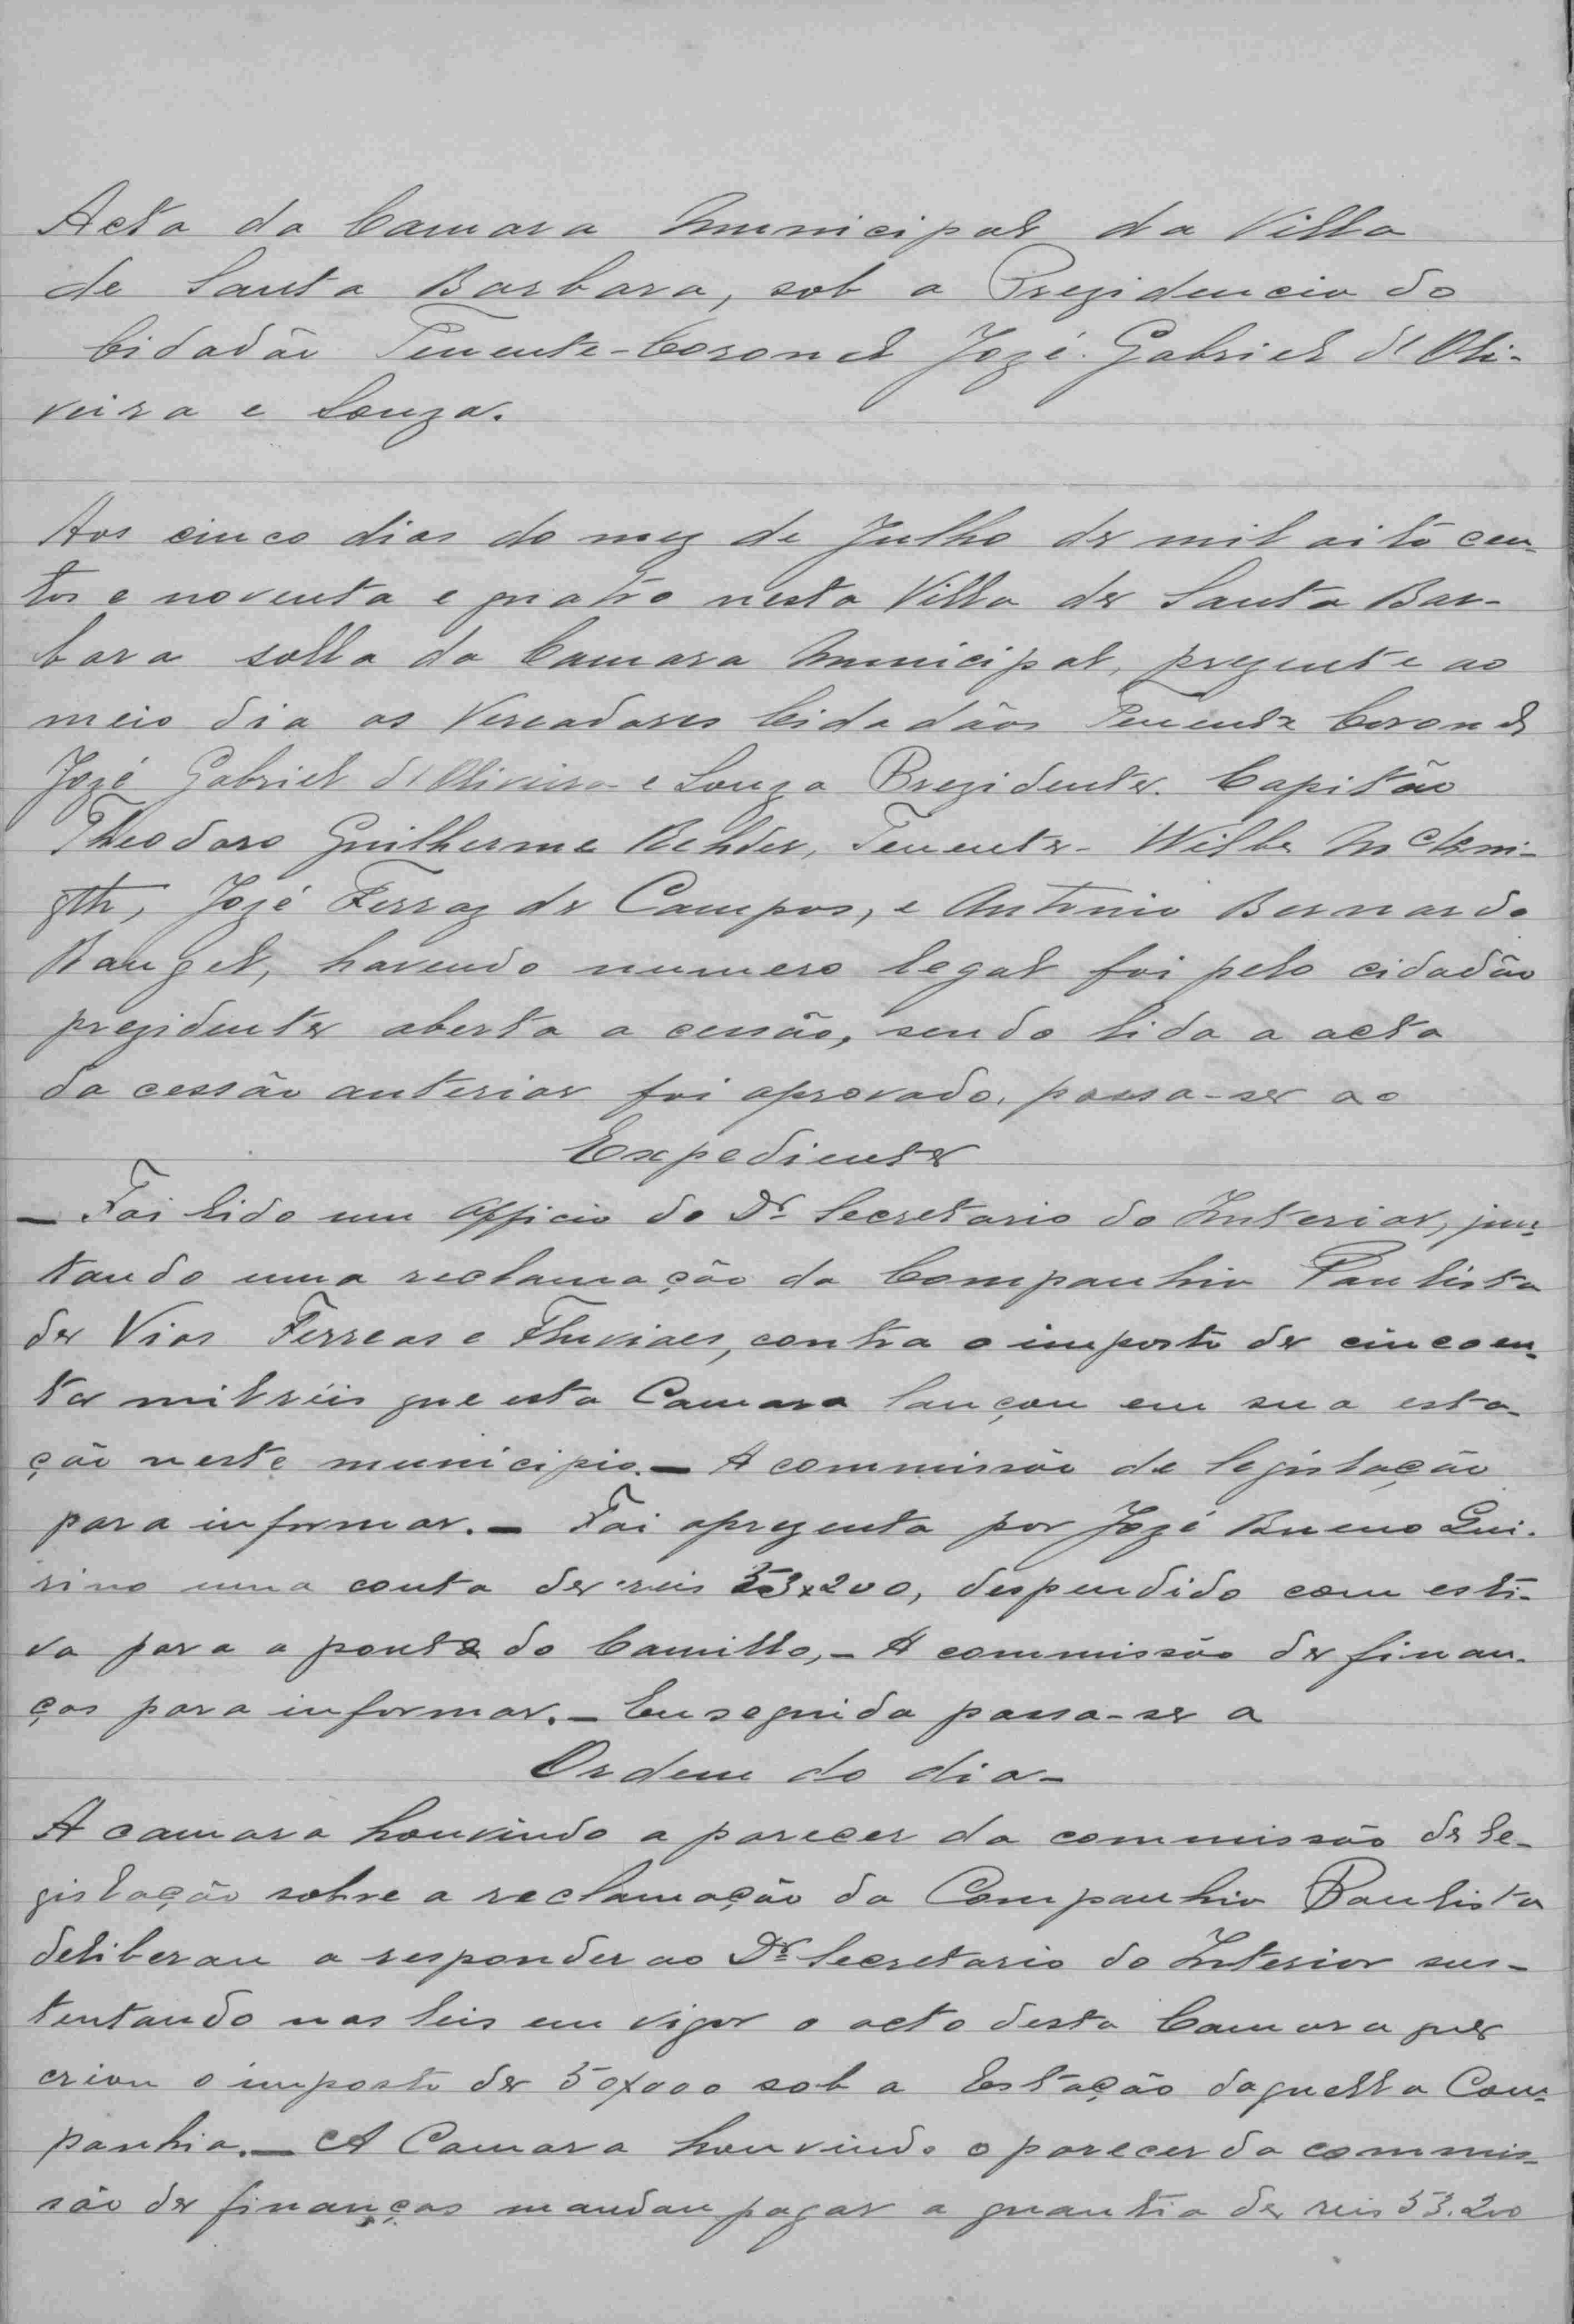 Acta da Camara Municipal da Villa
de Santa Barbara, sob a Prezidencia do
Cidadão Tenente-Coronel Jozé Gabriel d'Oli-
veira e Souza.
Aos cinco dias do mez de Julho de mil oito cen-
tos e noventa e quatro nesta Villa de Santa Bar-
bara salla da Camara Municipal, prezente ao
meio dia os Vereadores Cidadãos Tenente Coronel
Jozé Gabriel d'Oliveira e Souza Prezidente. Capitão
Theodoro Guilherme Rehder, Tenente- Wilber McKni-
gth, Jozé Ferraz de Campos, e Antonio Bernardo
Rangel, havendo numero legal foi pelo cidadão
prezidente aberta a cessão, sendo lida a acta
da cessão anterior foi aprovado, passa-se ao
Expediente
— Foi lido um officio do Dr. Secretario do Interior, jun-
tando uma reclamação da Companhia Paulista
de Vias Ferreas e Fluviaes, contra o imposto de cincoen-
ta mil réis que esta Camara lançou em sua esta-
ção neste municipio.— A commissão de legislação
para informar.— Foi aprezenta por Jozé Bueno Qui-
rino uma conta de reis 53x200, despendido com esti-
va para a ponte do Camillo,- A commissão de finan-
ças para informar.— Em seguida passa-se a
Ordem do dia-
A camara houvindo a parecer da commissão de le-
gislação sobre a reclamação da Companhia Paulista
deliberau a responder ao Dr. Secretario do Interior sus-
tentando nas leis em vigor o acto desta Camara que
criou o imposto de 50x000 sob a Estação daquella Com-
panhia.— A Camara houvindo o parecer da commis-
são de finanças mandau pagar a quantia de reis 53.200